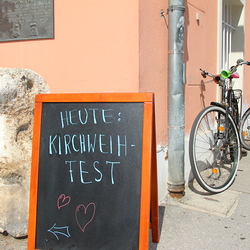 HEUTE:
KIRCHWEIH-
FEST